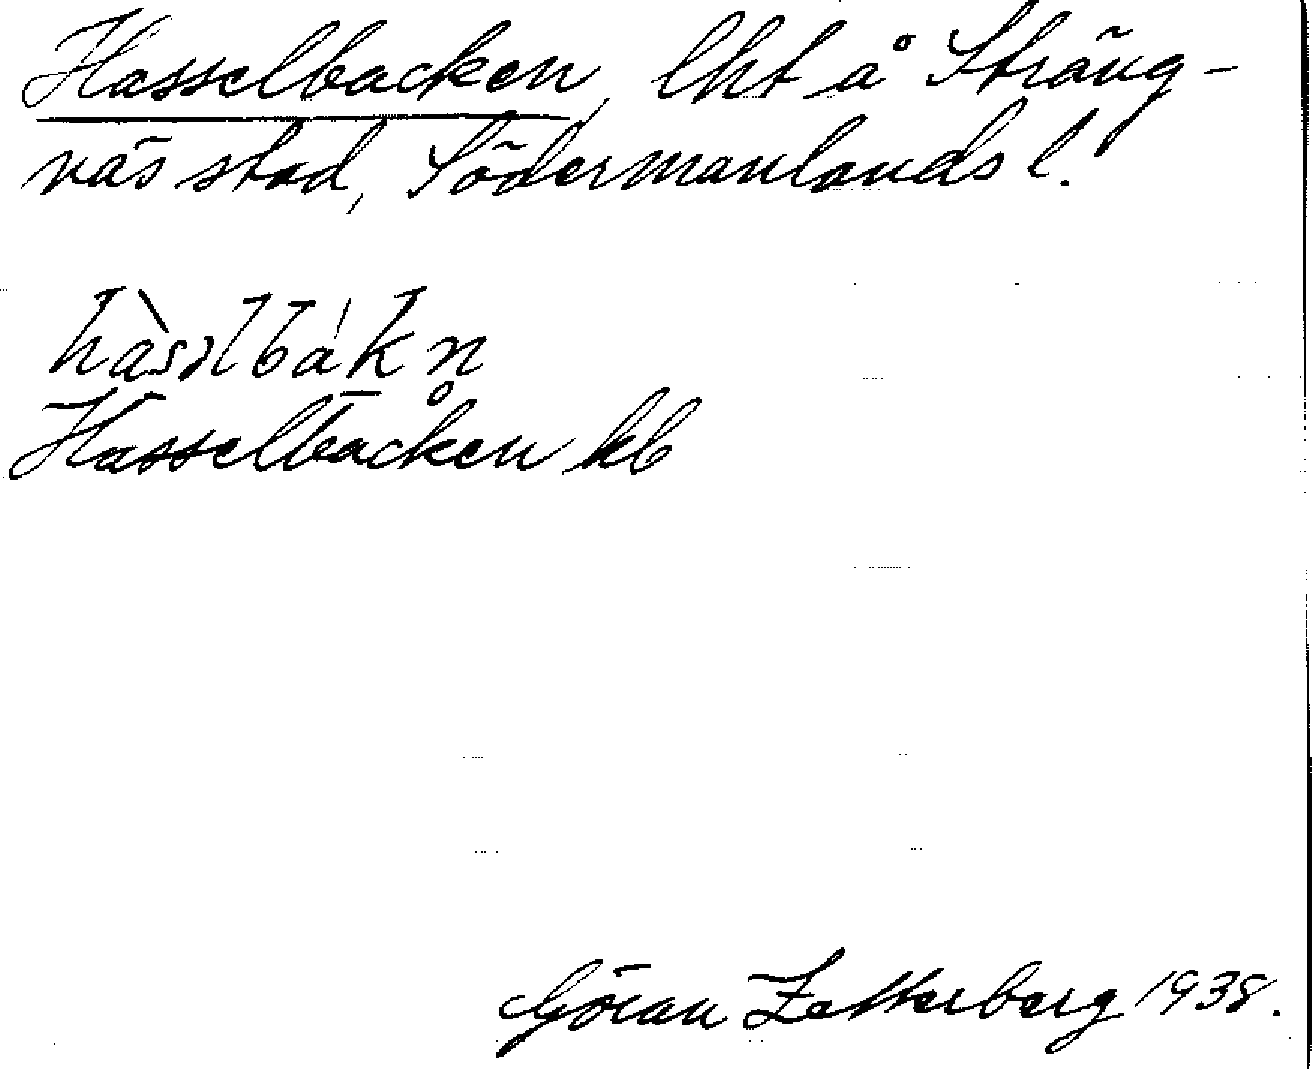 Hasselbacken, lht å Sträng-
näs stad, Södermanlands l.
hàsslbákn̥
Hasselbacken kb
Göran Zetterberg 1938.